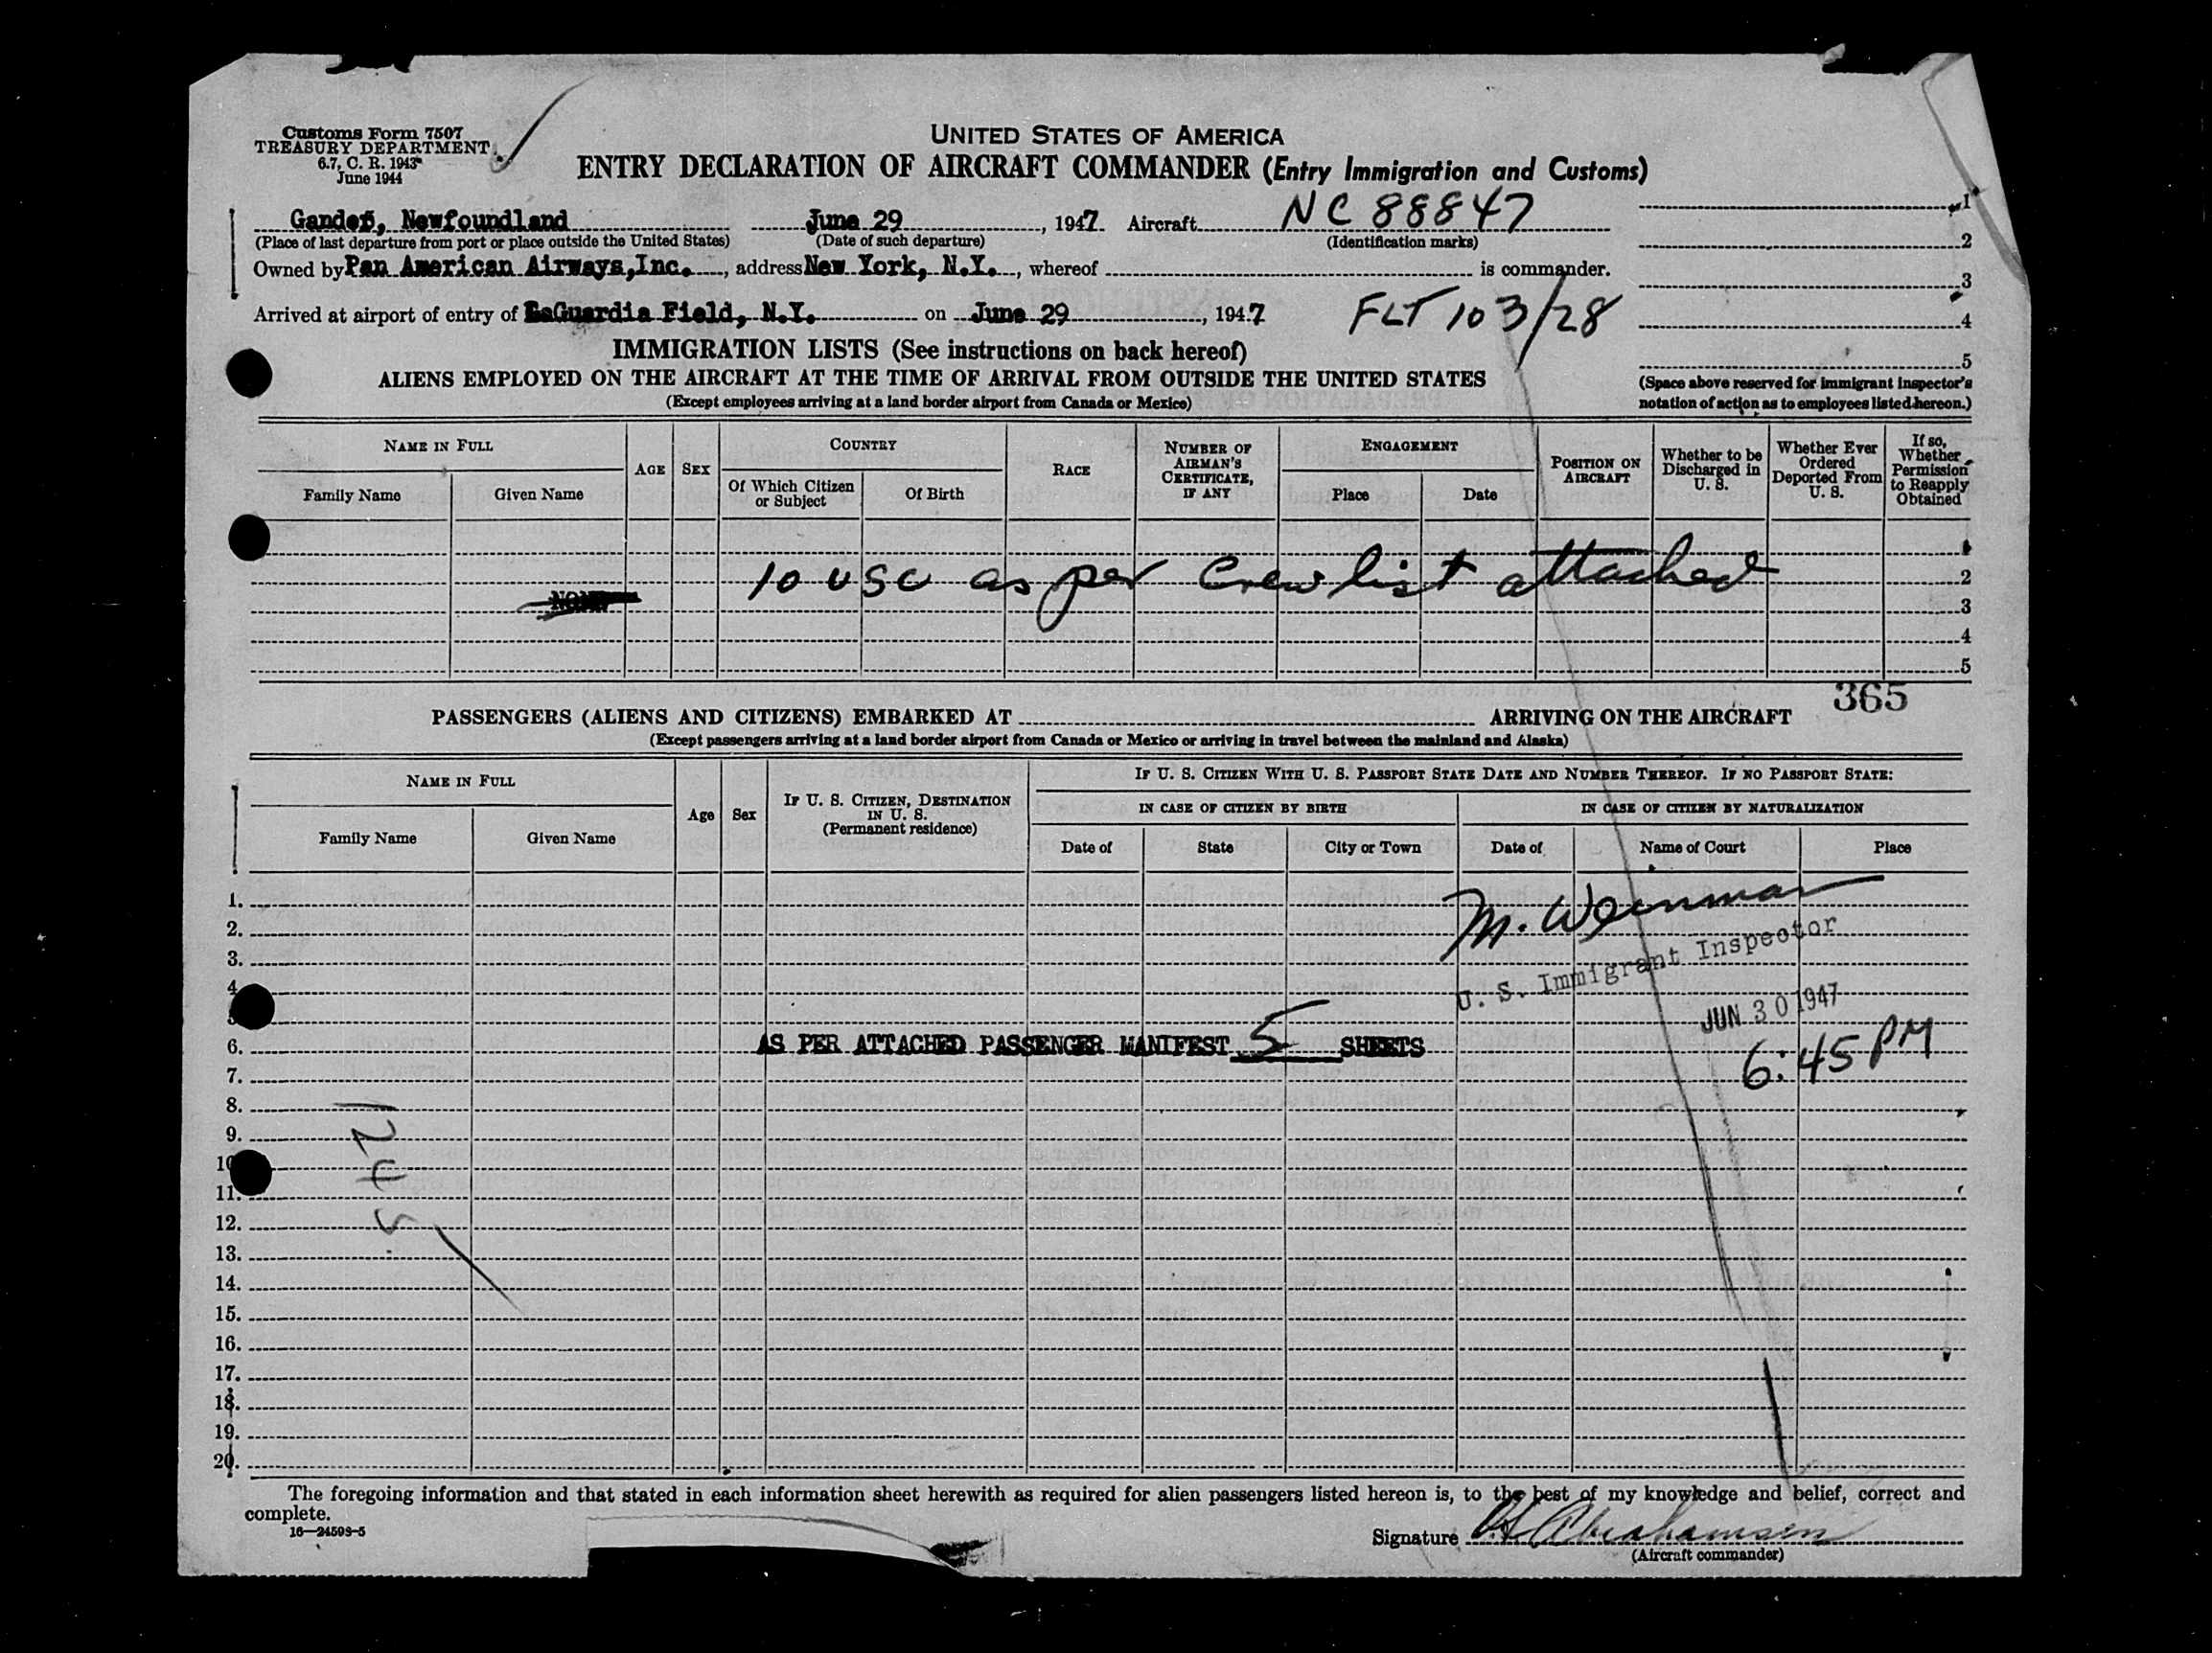 Customs Form 7507
TREASURY DEPARTMENT
6.7, C. R. 1943
June 1944
UNITED STATES OF AMERICA
ENTRY DECLARATION OF AIRCRAFT COMMANDER (Entry Immigration and Customs)
Gander, Newfoundland June 29, 1947 Aircraft NC 88847
(Place of last departure from port or place outside the United States) (Date of such departure) (Identification marks)
Owned by Pan American Airways, Inc., address New York, N.Y., whereof is commander.
Arrived at airport of entry of LaGuardia Field, N.Y. on June 29, 1947 FLT 103/28
1
2
3
4
5
(Space above reserved for immigrant inspector's
notation of action as to employees listed hereon.)
IMMIGRATION LISTS (See instructions on back hereof)
ALIENS EMPLOYED ON THE AIRCRAFT AT THE TIME OF ARRIVAL FROM OUTSIDE THE UNITED STATES
(Except employees arriving at a land border airport from Canada or Mexico)
NAME IN FULL
Family Name
Given Name
AGE
SEX
COUNTRY
Of Which Citizen
or Subject
Of Birth
RACE
NUMBER OF
AIRMAN'S
CERTIFICATE,
IF ANY
ENGAGEMENT
Place
Date
POSITION ON
AIRCRAFT
Whether to be
Discharged in
U. S.
Whether Ever
Ordered
Deported From
U. S.
If so,
Whether
Permission
to Reapply
Obtained
1
10 USC as per Crew list attached 2
NONE 3
4
5
365
PASSENGERS (ALIENS AND CITIZENS) EMBARKED AT ARRIVING ON THE AIRCRAFT
(Except passengers arriving at a land border airport from Canada or Mexico or arriving in travel between the mainland and Alaska)
NAME IN FULL
Family Name
Given Name
Age
Sex
IF U. S. CITIZEN, DESTINATION
IN U. S.
(Permanent residence)
IF U. S. CITIZEN WITH U. S. PASSPORT STATE DATE AND NUMBER THEREOF. IF NO PASSPORT STATE:
IN CASE OF CITIZEN BY BIRTH
IN CASE OF CITIZEN BY NATURALIZATION
Date of
State
City or Town
Date of
Name of Court
Place
1.
2. M. Weinman
3.
4. U. S. Immigrant Inspector
JUN 30 1947
6. AS PER ATTACHED PASSENGER MANIFEST 5 SHEETS
7. 6:45 PM
8.
9.
10
11.
12.
13.
14.
15.
16.
17.
18.
19.
20.
The foregoing information and that stated in each information sheet herewith as required for alien passengers listed hereon is, to the best of my knowledge and belief, correct and
complete.
16—24598-5
Signature Abrahamsen
(Aircraft commander)